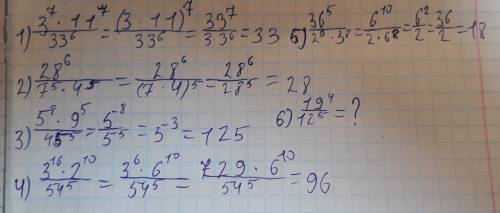 1) 3⁷ · 11⁷ / 33⁶ = (3 · 11)⁷ / 33⁶ = 33⁷ / 33⁶ = 33 5) 36⁵ / 2⁹ · 3⁸ = 6¹⁰ / 2 · 6⁸ = 6² / 2 = 36 / 2 = 18
2) 28⁶ / 7⁵ · 4⁵ = 28⁶ / (7 · 4)⁵ = 28⁶ / 28⁵ = 28
3) 5⁸ · 9⁵ / 45⁵ = 5⁻⁸ / 5⁵ = 5⁻³ = 125 6) 19⁴ / 12⁵ = ?
4) 3¹⁶ · 2¹⁰ / 54⁵ = 3⁶ · 6¹⁰ / 54⁵ = 729 · 6¹⁰ / 54⁵ = 96